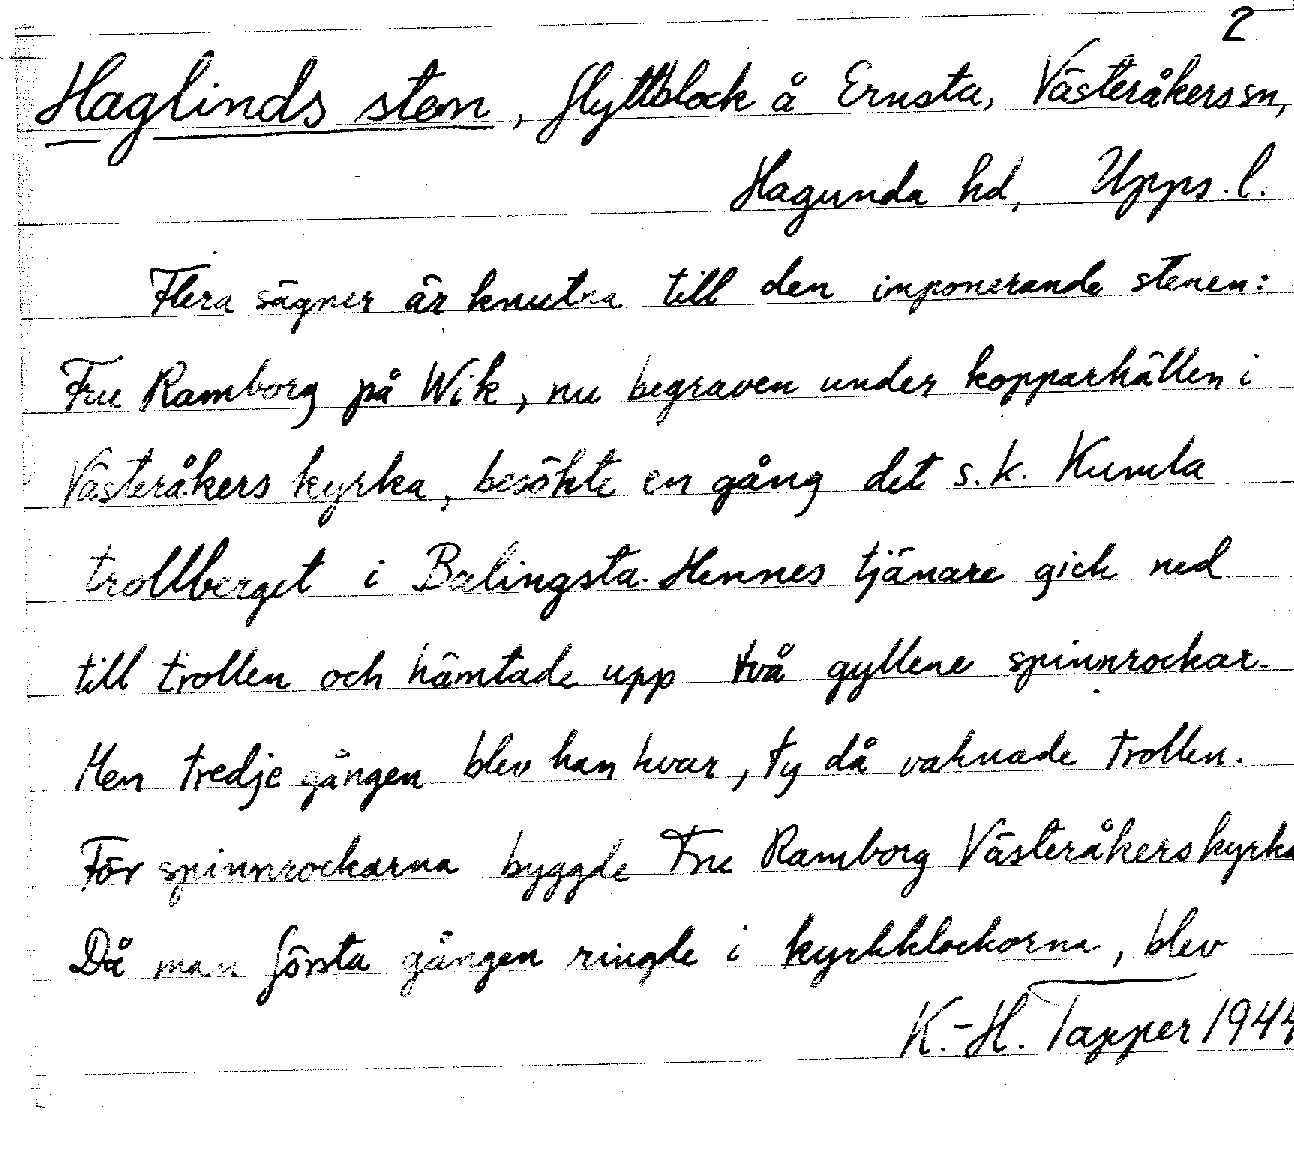 2
Haglinds sten, flyttblock å Ernsta, Västeråkers sn,
Hagunda hd, Upps. l.
Flera sägner är knutna till den imponerande stenen:
Fru Ramborg på Wik, nu begraven under kopparhällen i
Västeråkers kyrka, besökte en gång det s.k. Kumla
trollberget i Balingsta. Hennes tjänare gick ned
till trollen och hämtade upp två gyllene spinnrockar.
Men tredje gången blev han kvar, ty då vaknade trollen.
För spinnrockarna byggde Fru Ramborg Västeråkers kyrka
Då man första gången ringde i kyrkklockorna, blev
K.-H. Tapper 1944